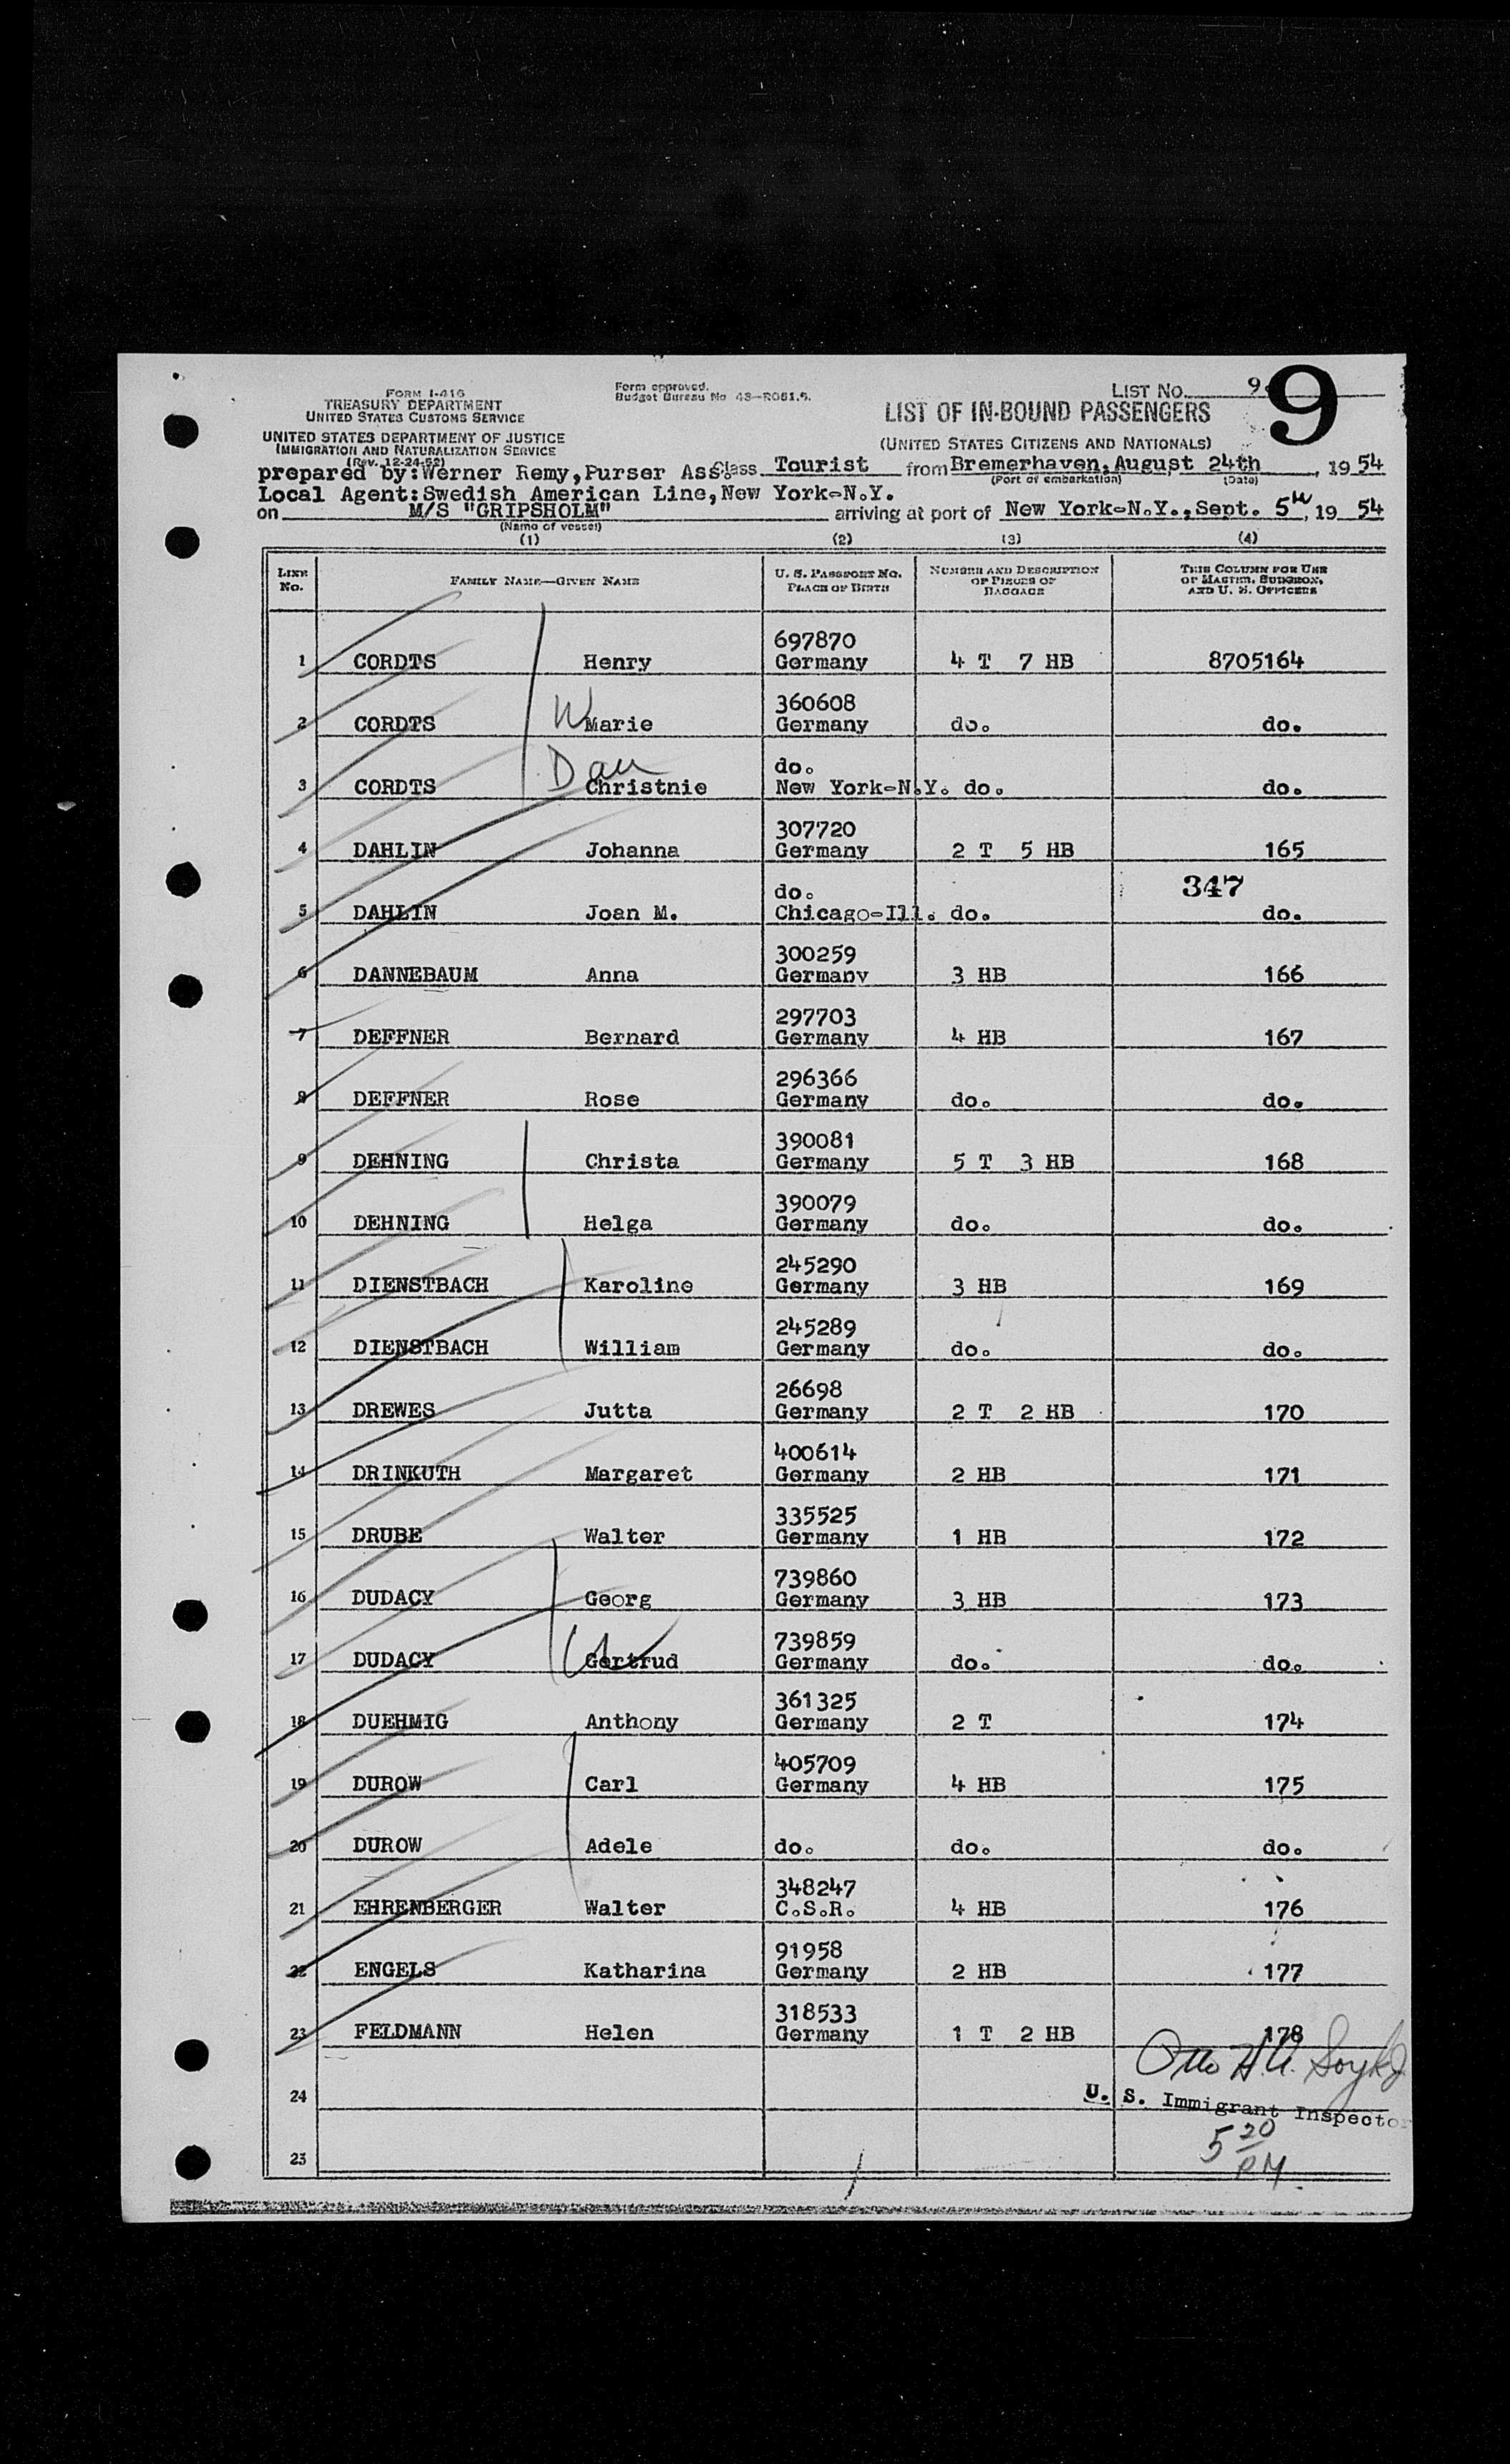 FORM I-416
TREASURY DEPARTMENT
UNITED STATES CUSTOMS SERVICE
UNITED STATES DEPARTMENT OF JUSTICE
IMMIGRATION AND NATURALIZATION SERVICE
(Rev. 12-24-52)
Form approved.
Budget Bureau No 43-R081.5.
LIST NO. 9
9
LIST OF IN-BOUND PASSENGERS
(UNITED STATES CITIZENS AND NATIONALS)
prepared by: Werner Remy, Purser Ass. Class Tourist from Bremerhaven, August 24th, 19 54
(Port of embarkation) (Date)
Local Agent: Swedish American Line, New York-N.Y.
on M/S "GRIPSHOLM" arriving at port of New York-N.Y., Sept. 5th, 19 54
(Name of vessel)
(1) (2) (3) (4)
LINE NO. FAMILY NAME—GIVEN NAME U. S. PASSPORT NO. PLACE OF BIRTH NUMBER AND DESCRIPTION OF PIECES OF BAGGAGE THIS COLUMN FOR USE OF MASTER, SURGEON, AND U. S. OFFICERS
697870
1 CORDTS Henry Germany 4 T 7 HB 8705164
360608
2 CORDTS W Marie Germany do. do.
Dau do.
3 CORDTS Christnie New York-N.Y. do. do.
307720
4 DAHLIN Johanna Germany 2 T 5 HB 165
do. 347
5 DAHLIN Joan M. Chicago-Ill. do. do.
300259
6 DANNEBAUM Anna Germany 3 HB 166
297703
7 DEFFNER Bernard Germany 4 HB 167
296366
8 DEFFNER Rose Germany do. do.
390081
9 DEHNING Christa Germany 5 T 3 HB 168
390079
10 DEHNING Helga Germany do. do.
245290
11 DIENSTBACH Karoline Germany 3 HB 169
245289
12 DIENSTBACH William Germany do. do.
26698
13 DREWES Jutta Germany 2 T 2 HB 170
400614
14 DRINKUTH Margaret Germany 2 HB 171
335525
15 DRUBE Walter Germany 1 HB 172
739860
16 DUDACY Georg Germany 3 HB 173
739859
17 DUDACY W Gertrud Germany do. do.
361325
18 DUEHMIG Anthony Germany 2 T 174
405709
19 DUROW Carl Germany 4 HB 175
20 DUROW Adele do. do. do.
348247
21 EHRENBERGER Walter C.S.R. 4 HB 176
91958
22 ENGELS Katharina Germany 2 HB 177
318533
23 FELDMANN Helen Germany 1 T 2 HB 178
Otto H.A.
24 U. S. Immigrant Inspecto
5 20 PM
25